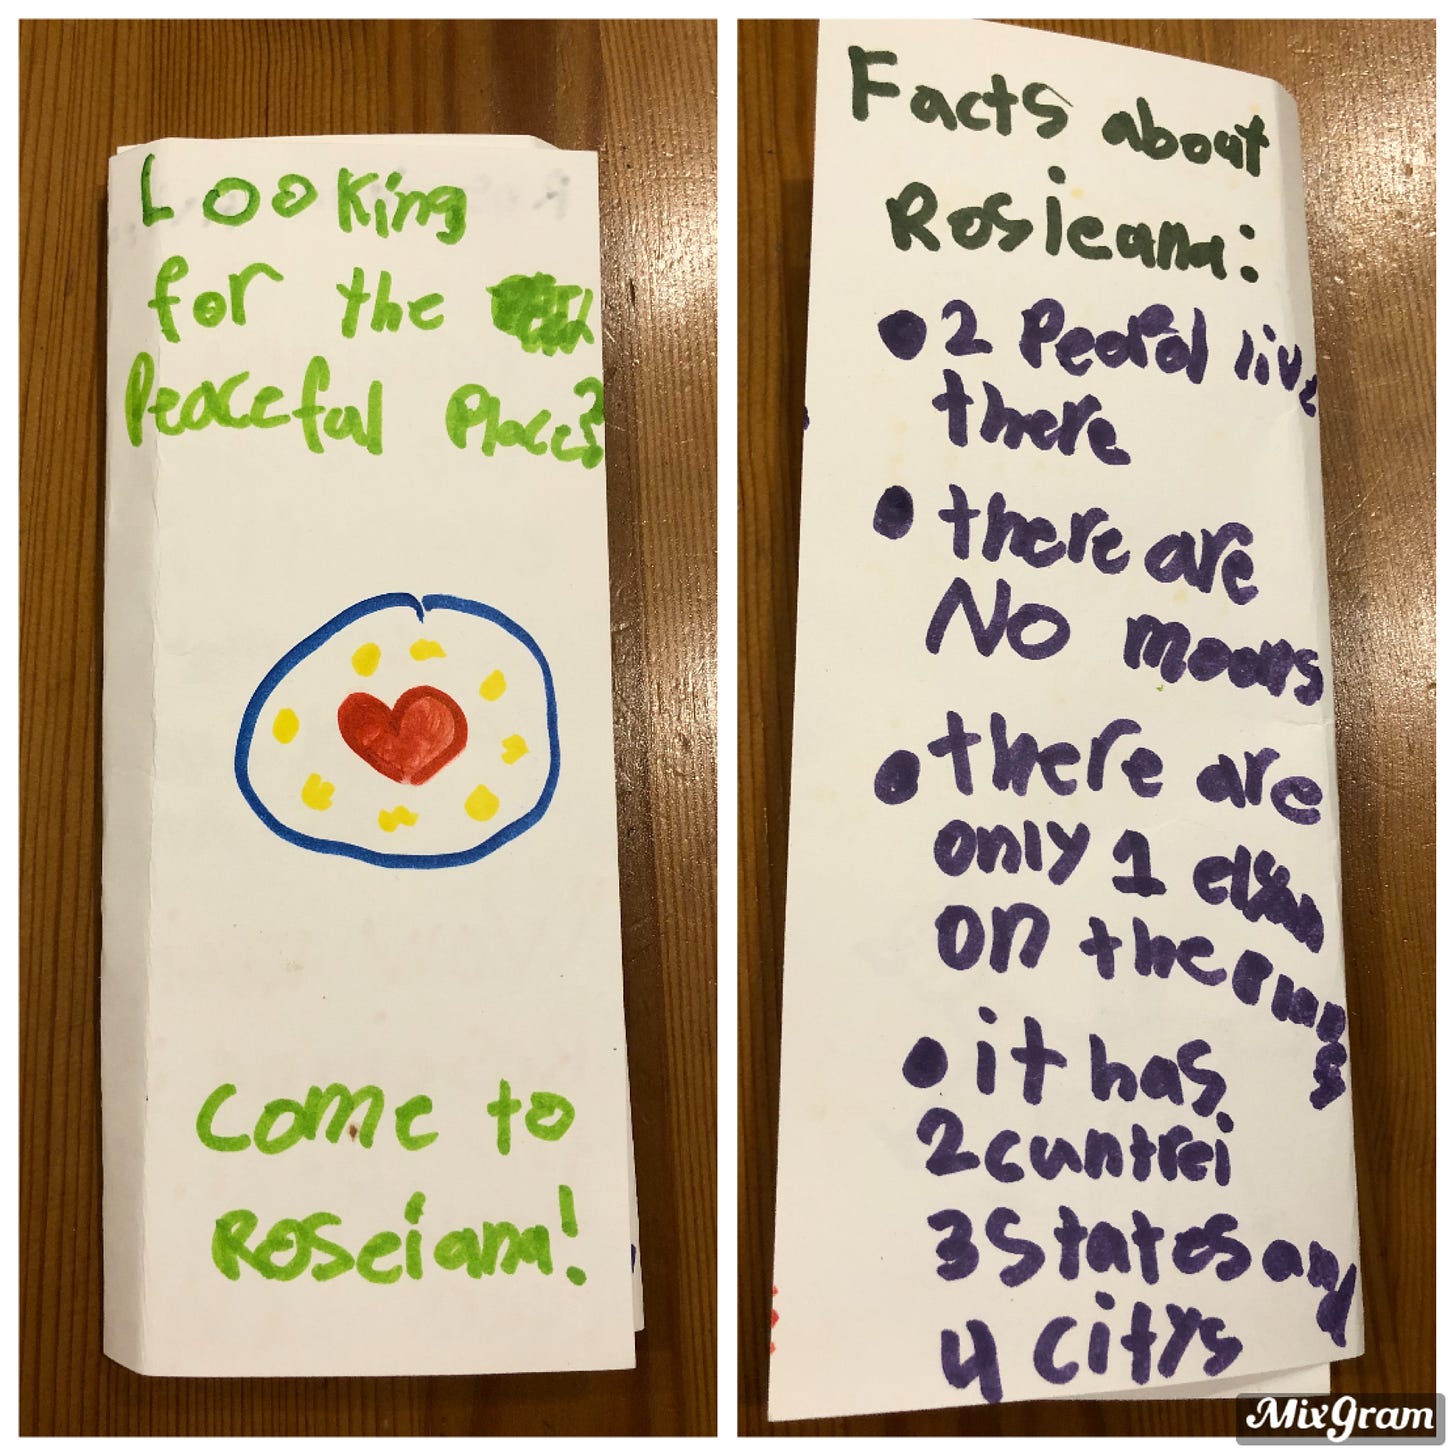 Looking
for the
Peaceful Place?
Come to
Roseiana!
Facts about
Rosieana:
• 2 Peopol live
there
• there are
No moons
• there are
only 1 clan
on the
• it has
2 cuntrei
3 States and
4 citys
MixGram